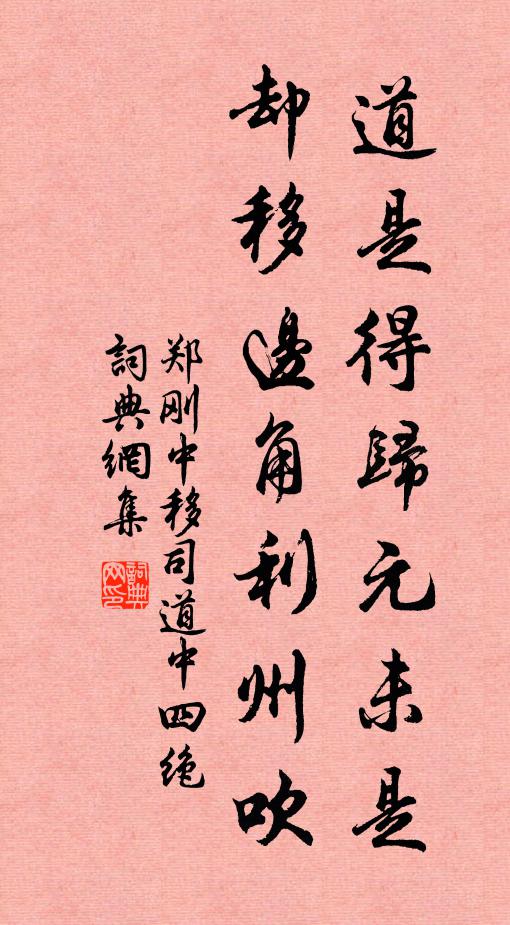 道是得歸元未是
却移邊角利州吹
郑刚中移司道中四绝
詞典網集
詞典網印